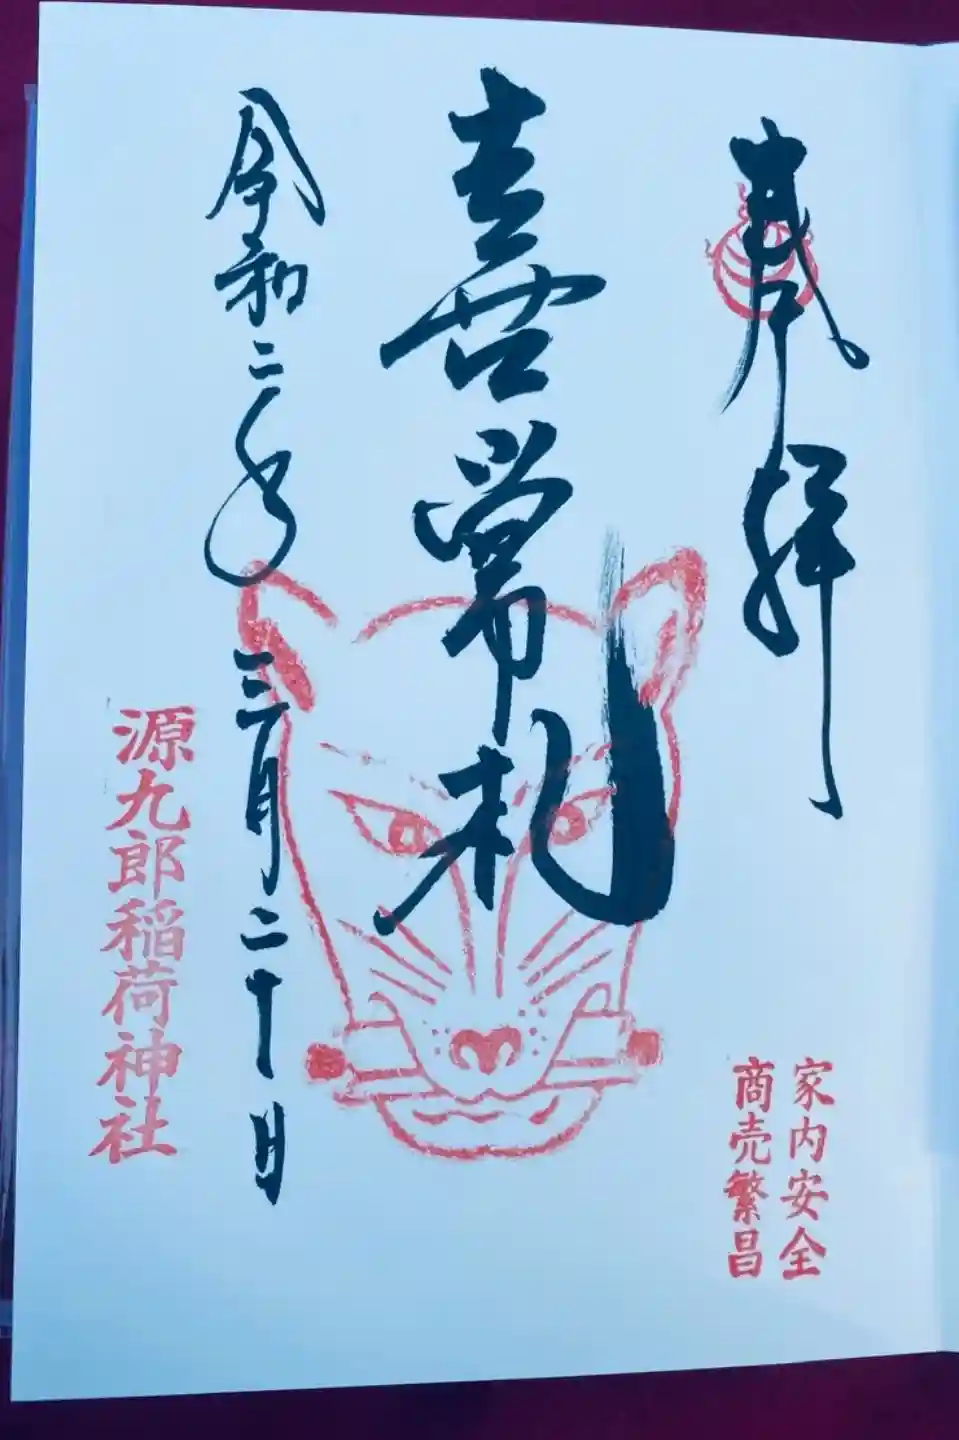 奉拝
喜常札
令和二年三月二十日
源九郎稲荷神社
家内安全
商売繁昌